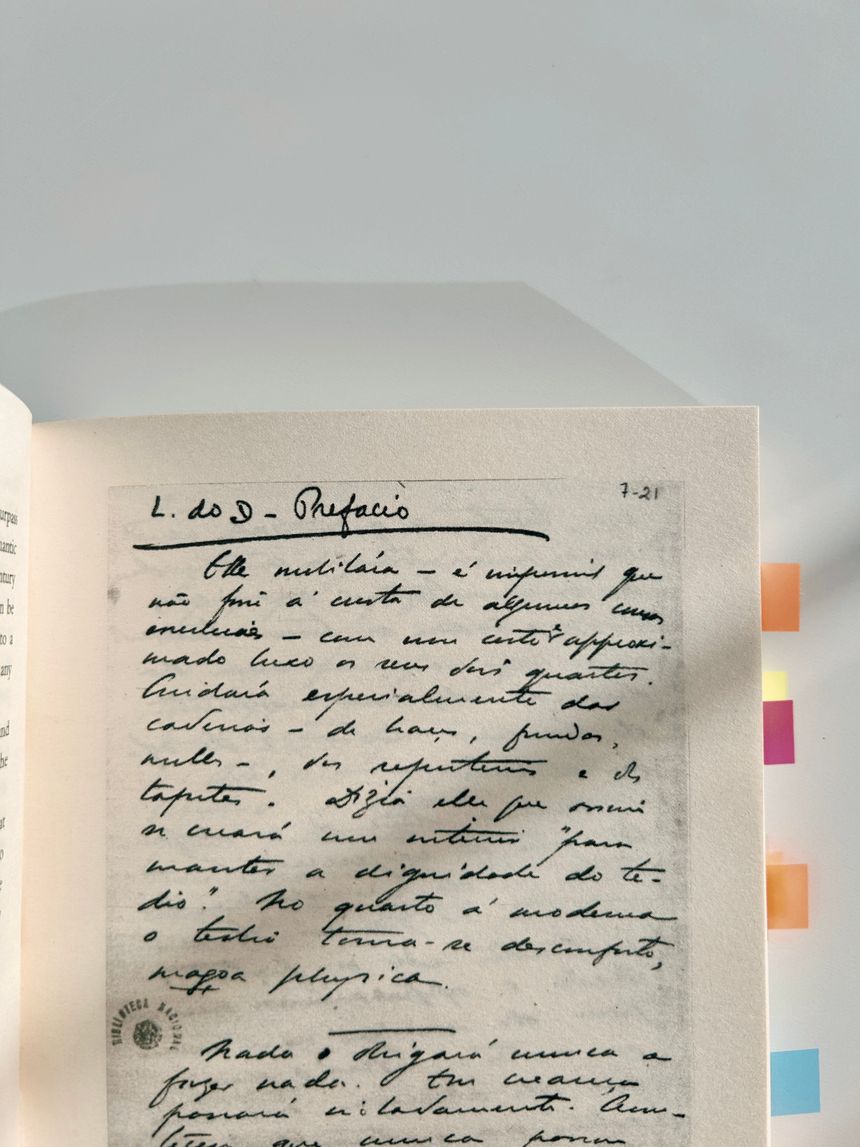 to a
any
L. do D - Prefacio
7-21
Elle mobilára — é impossivel que
não fosse á custa de algumas cousas
essenciaes — com um certo e approxi-
mado luxo os seus dois quartos.
Cuidára especialmente das
cadeiras — de braços, fundas,
molles —, dos reposteiros e dos
tapetes. Dizia elle que assim
se creára um interior "para
manter a dignidade do te-
dio". No quarto á moderna
o tedio torna-se desconforto,
magoa physica.
BIBLIOTECA NACIONAL
Nada o obrigára nunca a
fazer nada. Em creança
passára isoladamente. Acon-
teceu que nunca passou